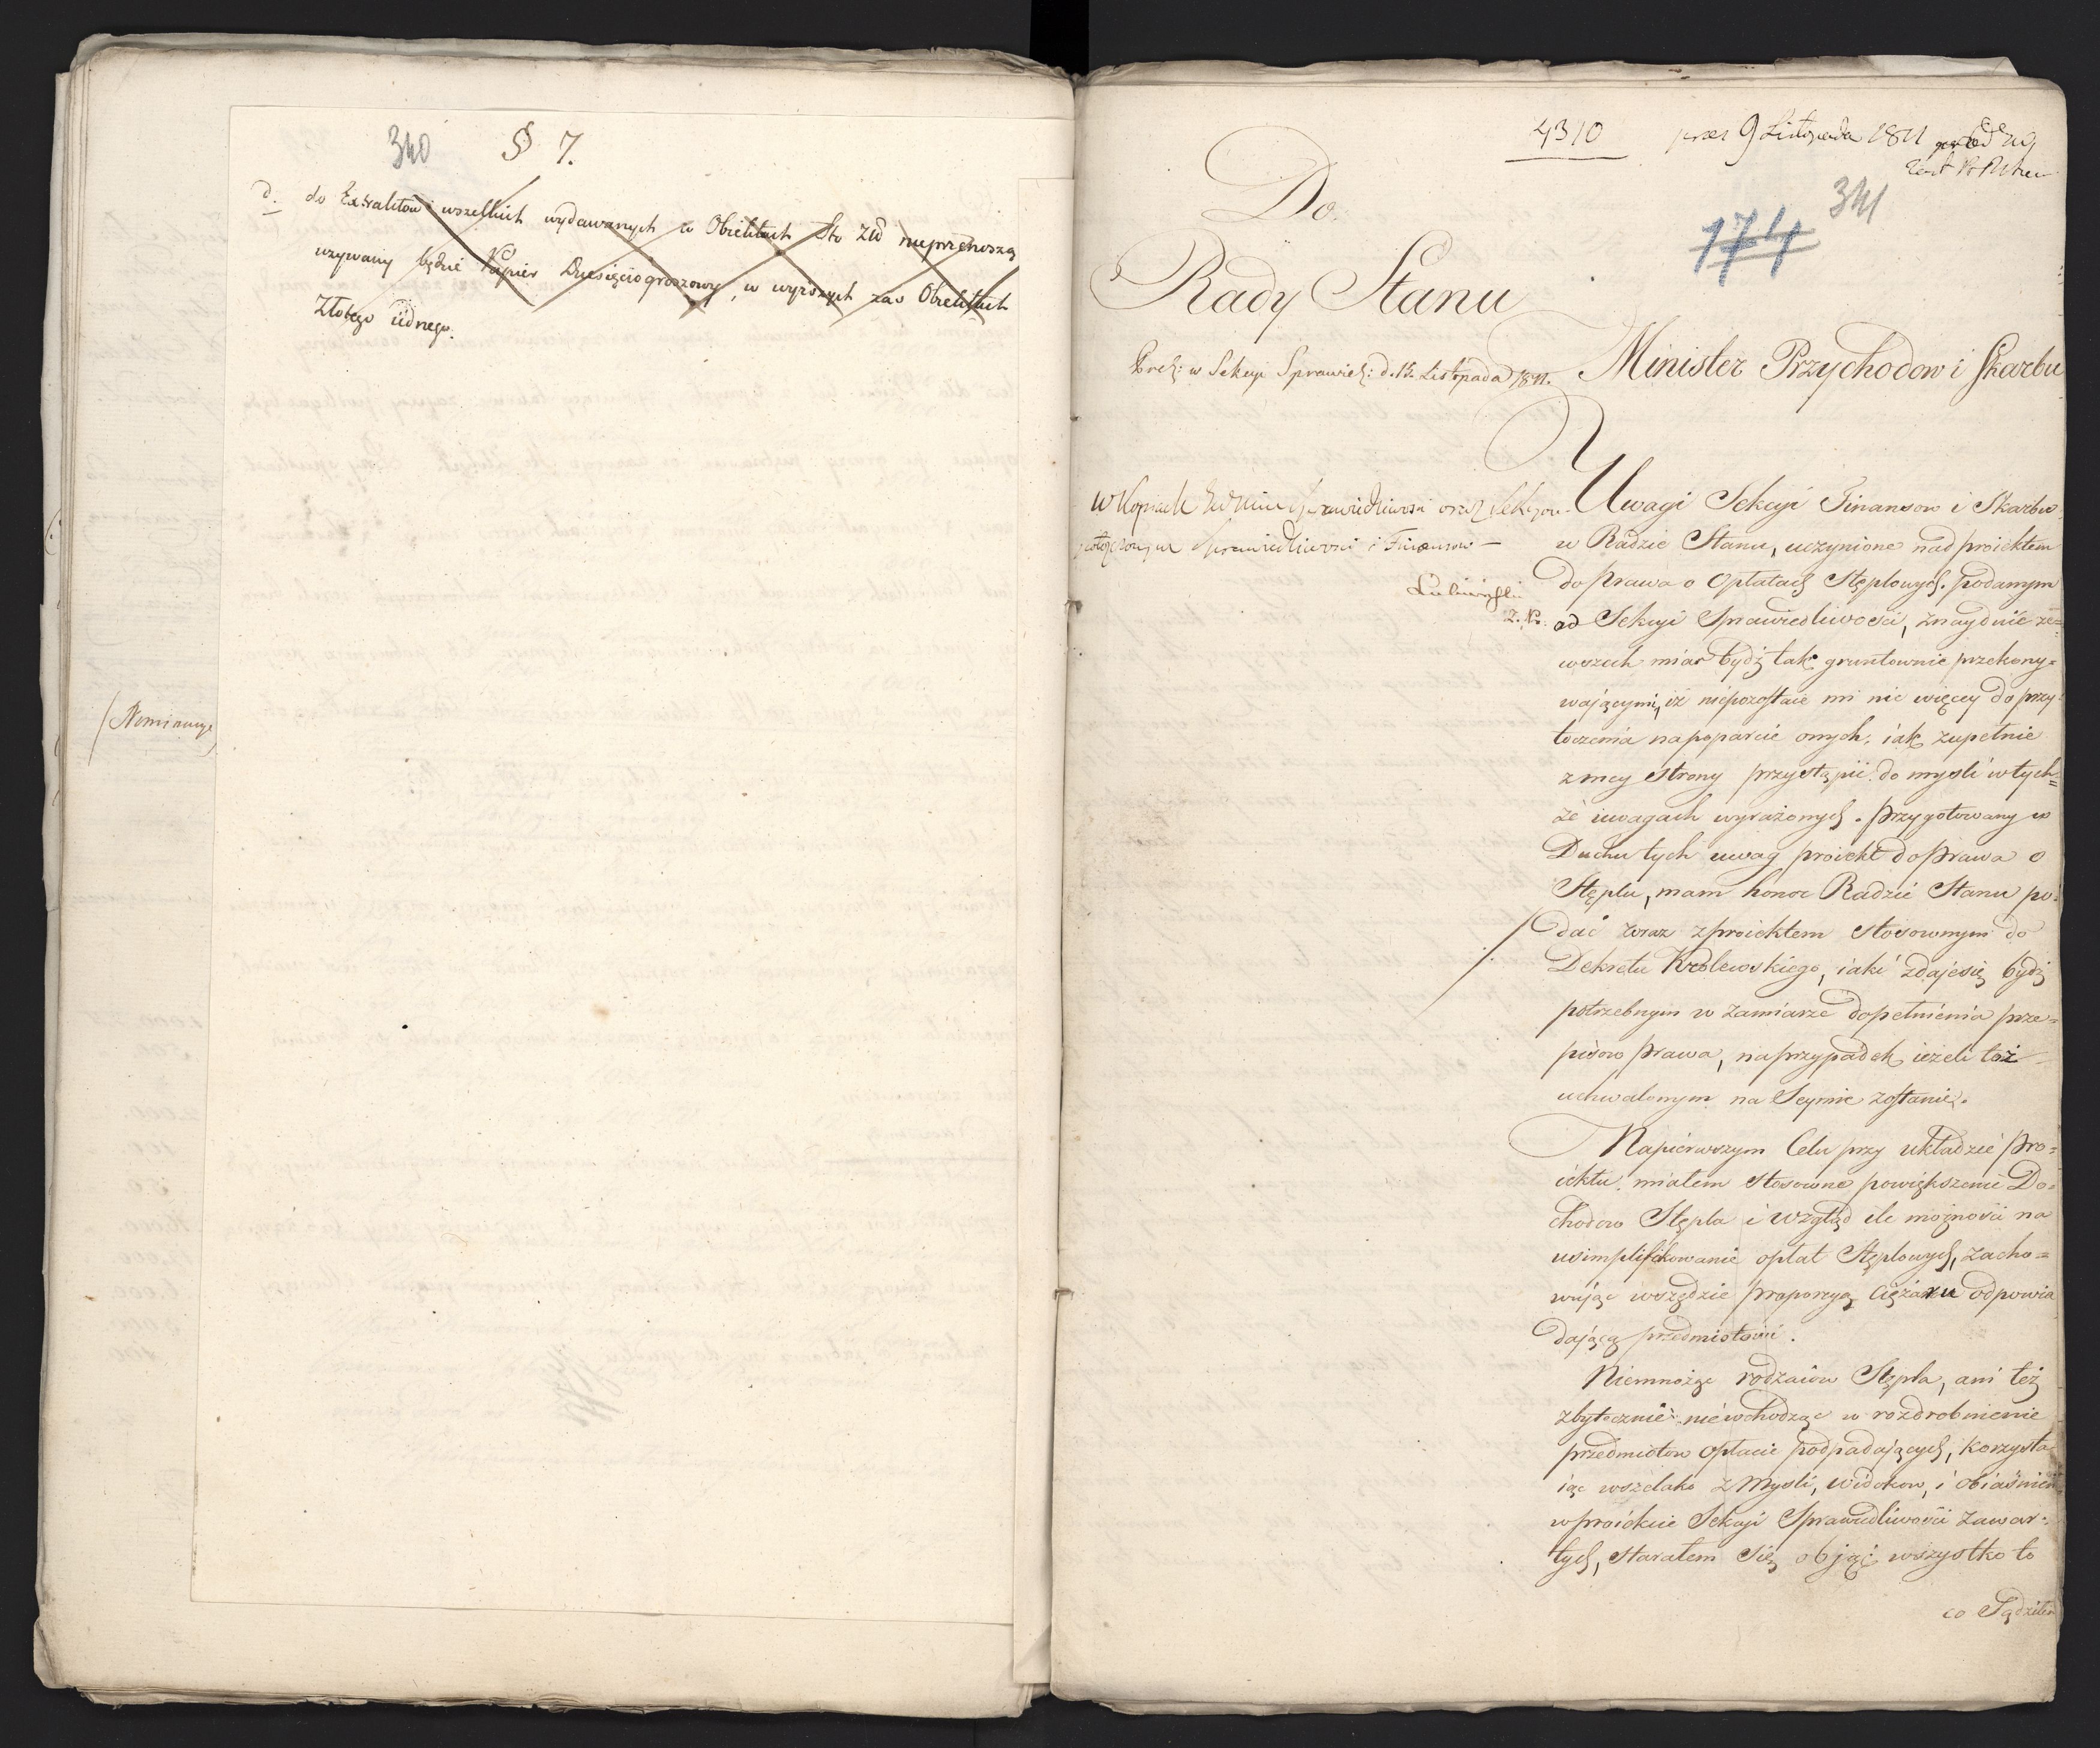 340 § 7.
d. do Extraktow wszelkich wydawanych w Obiektach Sto Zł nieprzenoszą
uzywany będzie Papier Dziesięciogroszowy, w wyższych zas Obiektach
Złotego iednego.
(Nominacye)
4310 prez 9 Listopada 1811
341
174
Do
Rady Stanu
Minister Przychodow i Skarbu
Prez: w Sekcyi Sprawied: d. 15. Listopada 1811.
Uwagi Sekcyi Finansow i Skarbu
w Radzie Stanu, uczynione nad proiektem
do prawa o Opłatach Stęplowych podanym
od Sekcyi Sprawiedliwości, znayduię ze=
wszech miar bydź tak gruntownie przekony=
wającymi, iż niepozostaie mi nic więcey do przy=
toczenia na poparcie onych, iak zupełnie
z mey strony przystąpić do mysli w tych=
że uwagach wyrażonych. Przygotowany w
Duchu tych uwag proiekt do prawa o
Stęplu, mam honor Radzie Stanu po=
dać wraz z proiektem stosownym do
Dekretu Krolewskiego, iaki zdaje się bydź
potrzebnym w zamiarze dopełnienia prze=
pisow prawa, na przypadek ieżeli toż
uchwalonym na Seymie zostanie.
W Kopiach
Sprawiedliwosci oraz Sekcyom
połączonym Sprawiedliwosci i Finansow —
Lubieński
Napierwszym Celu przy układzie pro=
iektu miałem stosowne powiększenie Do=
chodow Stępla i wzgląd ile możnosci na
usimplifikowanie opłat Stęplowych, zacho=
wując wszędzie proporcyą Ciężaru odpowia
dającą przedmiotowi.
Niemnożąc rodzaiow Stępla, ani też
zbytecznie niewchodząc w rozdrobnienie
przedmiotow opłacie podpadających, korzysta
iąc wszelako z Mysli, widokow, i obiaśnień
w proiekcie Sekcyi Sprawiedliwości zawar=
tych, starałem się objąć wszystko to
co Sądziłem